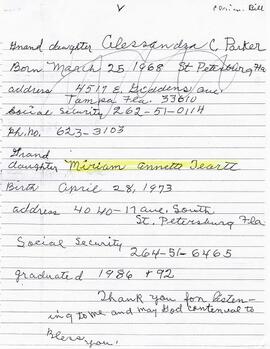 V
Grand daughter Alessandra C Parker
Born March 25, 1968 St Petersburg Fla
address 4517 E. Giddens ave
Tampa Fla. 33610
Social Security 262-51-0114
Ph. no. 623-3103
Grand
daughter Miriam annette
Birth April 28, 1973
address 4040-17 ave. South
St. Petersburg Fla
Social Security
264-51-6465
graduated 1986 + 92
Thank you for listen-
ing to me and may God contenual to
Bless you.